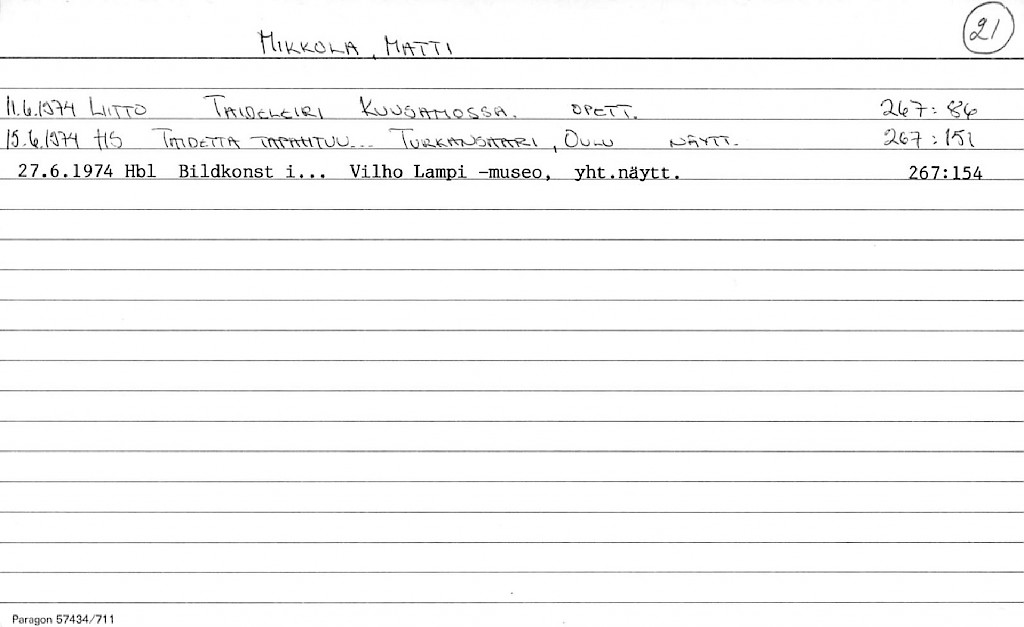 21
MIKKOLA, MATTI
11.6.1974 LIITTO TAIDELEIRI KUUSAMOSSA. OPETT. 267:86
15.6.1974 HS TAIDETTA TAPAHTUU... TURKANSAARI, OULU NÄYTT. 267:151
27.6.1974 Hbl Bildkonst i... Vilho Lampi -museo, yht.näytt. 267:154
Paragon 57434/711